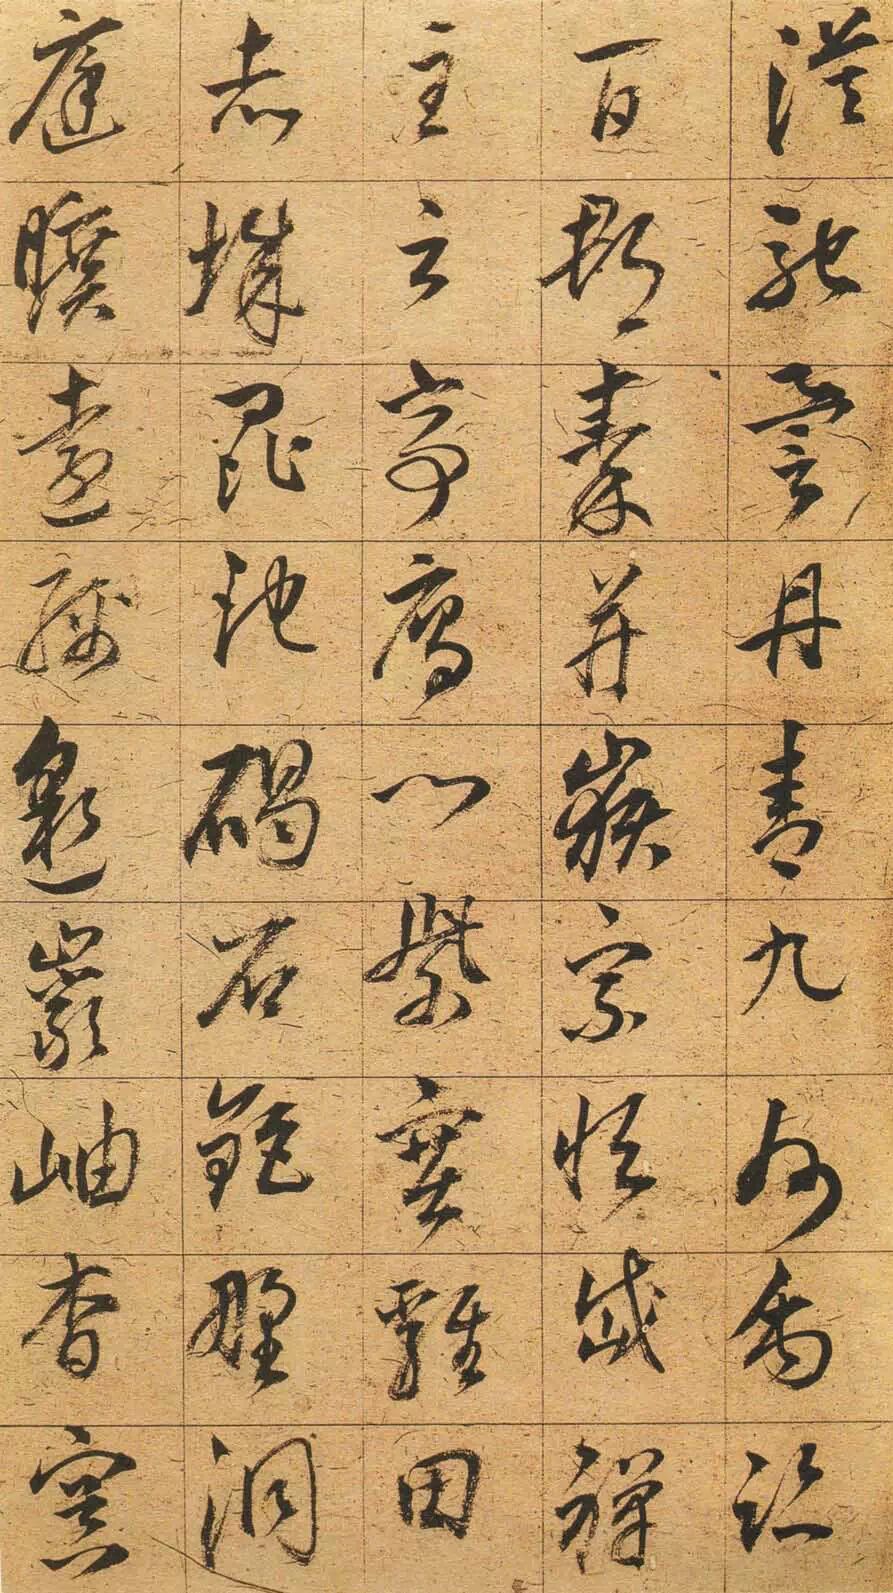 漠馳譽丹青九州禹跡
百郡秦并嶽宗恆岱禪
主云亭鴈門紫塞雞田
赤城昆池碣石鉅野洞
庭曠遠綿邈巖岫杳冥